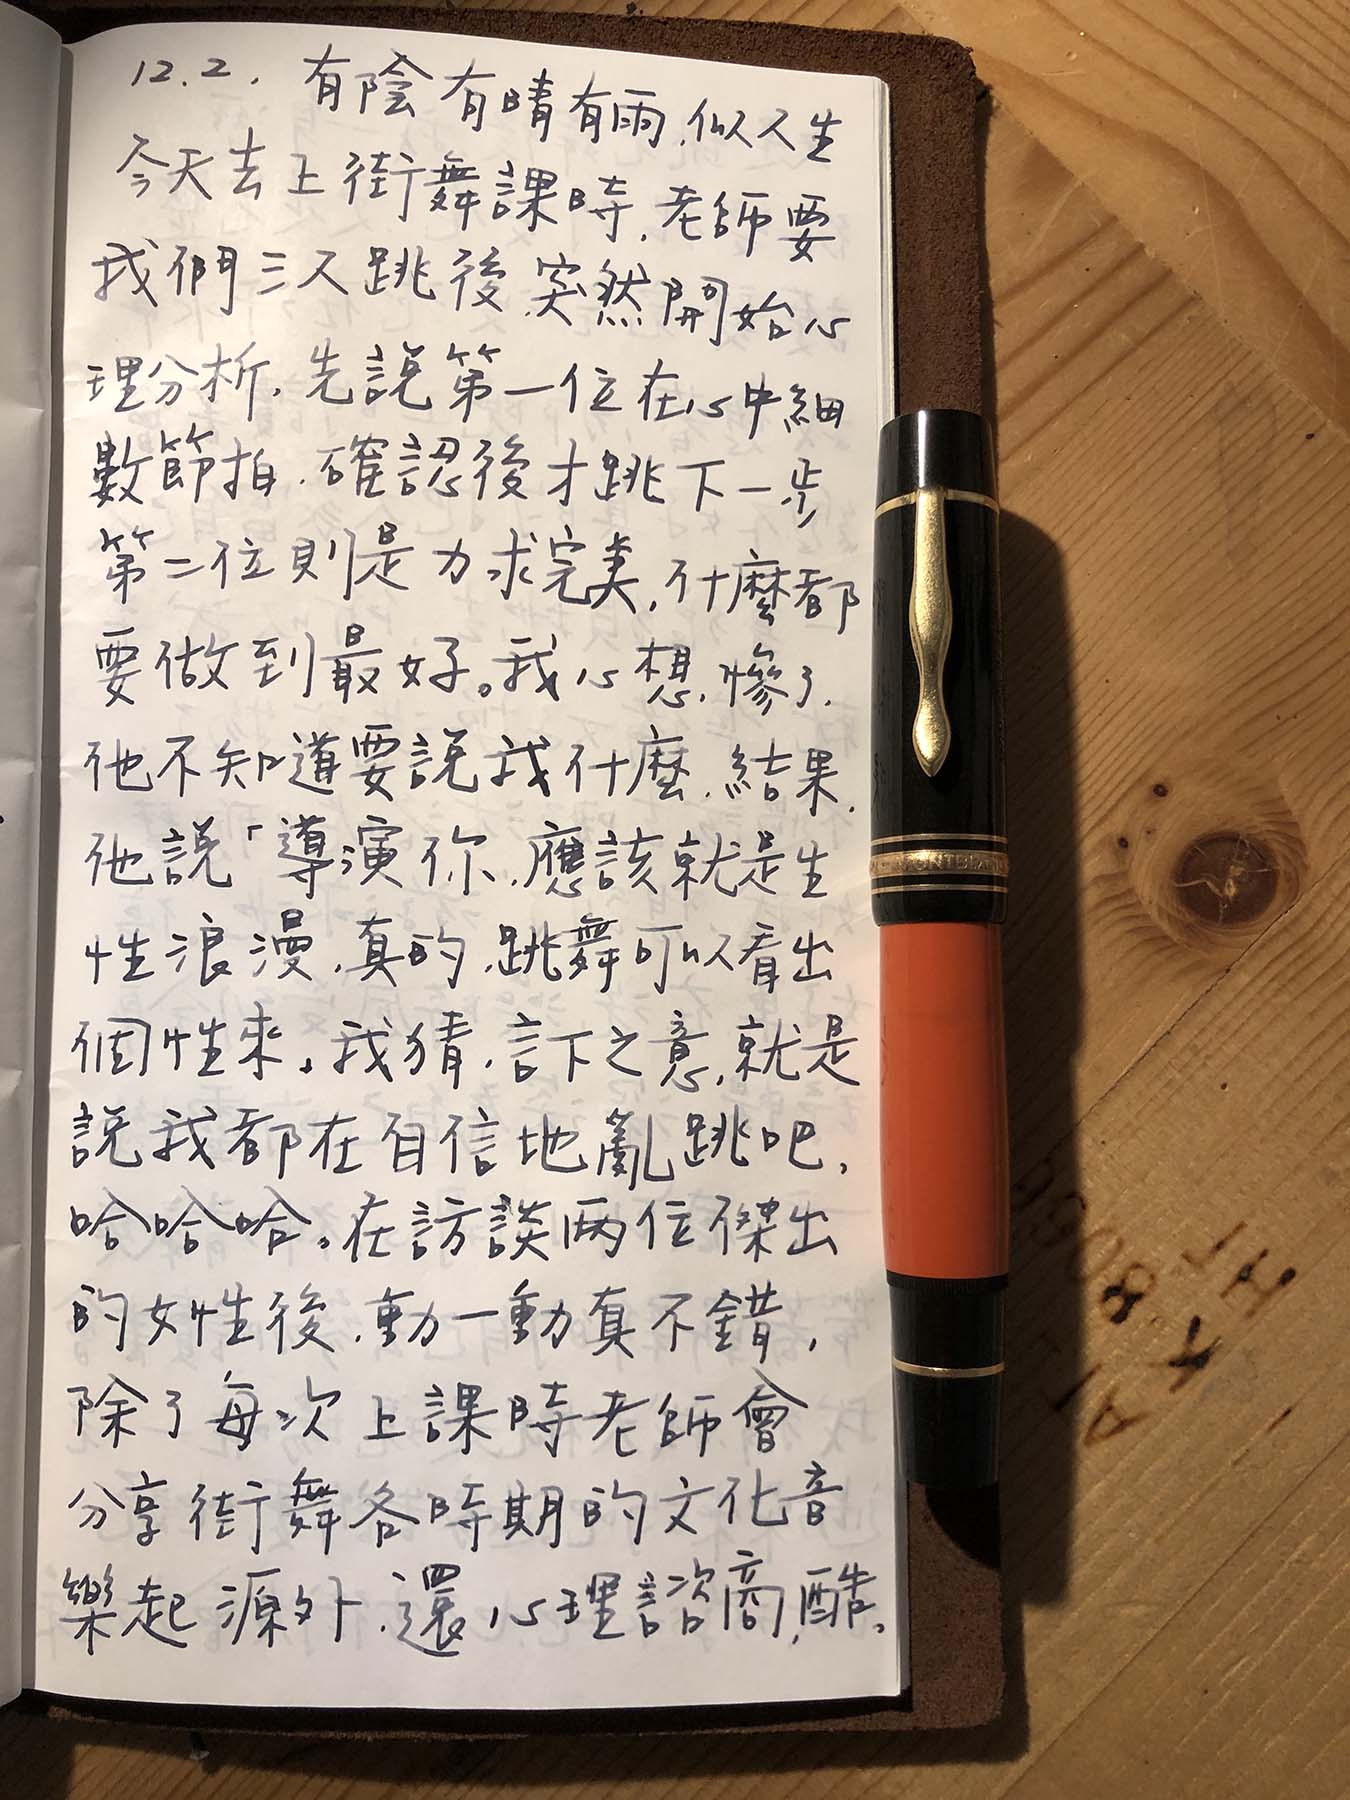 12.2. 有陰有晴有雨,似人生
今天去上街舞課時,老師要
我們三人跳後,突然開始心
理分析,先說第一位在心中細
數節拍,確認後才跳下一步
第二位則是力求完美,什麼都
要做到最好。我心想,慘了,
他不知道要說我什麼,結果,
他說「導演你,應該就是生
性浪漫,真的,跳舞可以看出
個性來。我猜,言下之意,就是
說我都在自信地亂跳吧,
哈哈哈。在訪談两位傑出
的女性後,動一動真不錯,
除了每次上課時老師會
分享街舞各時期的文化音
樂起源外,還心理諮商,酷。
MONTBLANC